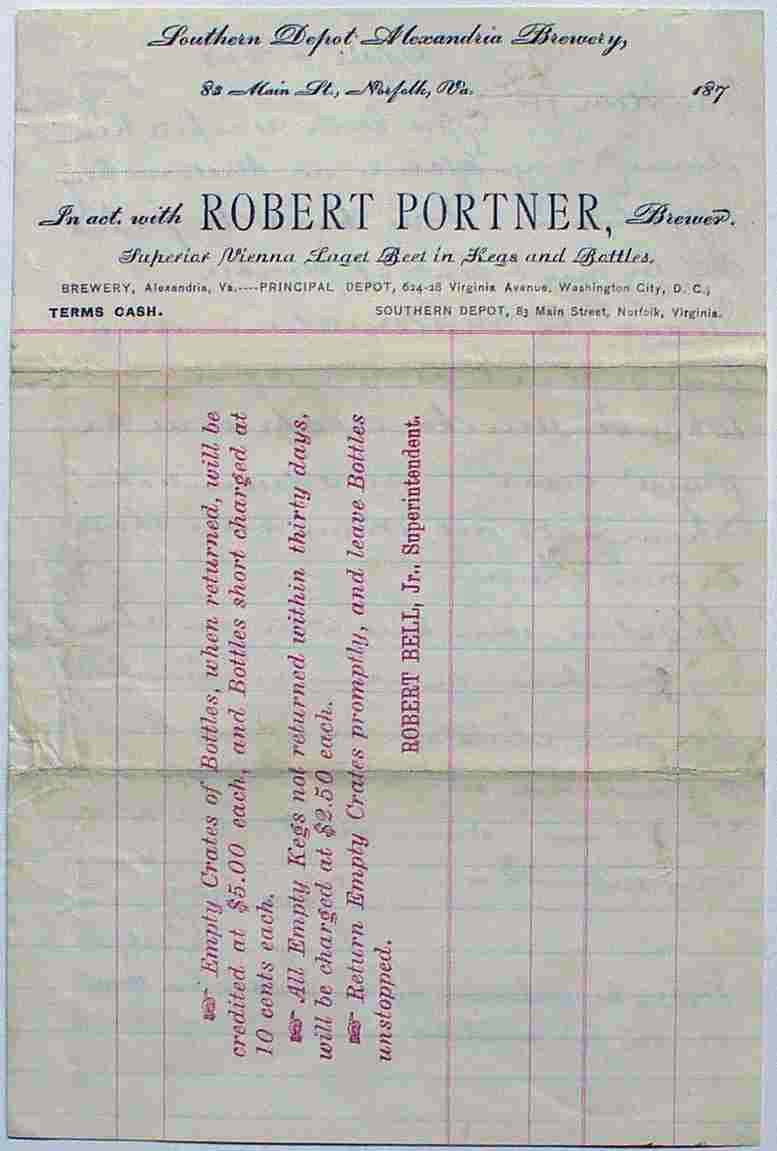 Southern Depot Alexandria Brewery,
83 Main St., Norfolk, Va. 187
In act. with ROBERT PORTNER, Brewer.
Superior Vienna Lager Beer in Kegs and Bottles.
BREWERY, Alexandria, Va.----PRINCIPAL DEPOT, 624-28 Virginia Avenue, Washington City, D. C.,
TERMS CASH. SOUTHERN DEPOT, 83 Main Street, Norfolk, Virginia.
☞ Empty Crates of Bottles, when returned, will be
credited at $5.00 each, and Bottles short charged at
10 cents each.
☞ All Empty Kegs not returned within thirty days,
will be charged at $2.50 each.
☞ Return Empty Crates promptly, and leave Bottles
unstopped.
ROBERT BELL, Jr., Superintendent.